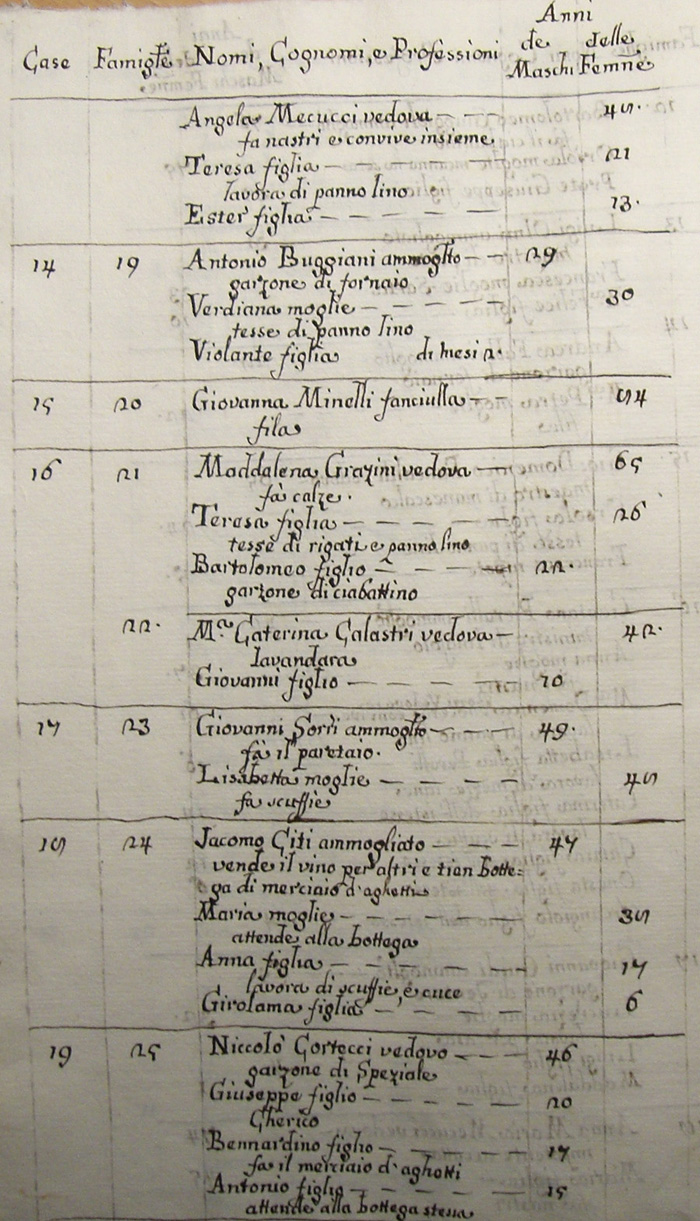 Anni
Case Famiglē Nomi, Cognomi, e Professioni de delle
Maschi Femne
Angela Mecucci vedova — — 48.
fa nastri e convive insieme
Teresa figlia — — — — 21
lavora di panno lino
Ester figlia — — — — 13.
14 19 Antonio Buggiani ammoglto — 29
garzone di fornaio
Verdiana moglie — — — — 30
tesse di panno lino
Violante figlia di mesi 2.
15 20 Giovanna Minelli fanciulla — 84
fila
16 21 Maddalena Grazini vedova — 65
fà calze.
Teresa figlia — — — — 26
tesse di rigati e panno lino
Bartolomeo figlio — — — 22.
garzone di ciabattino
22. Ma. Caterina Calastri vedova — 42.
lavandara
Giovanni figlio — — — — 10
17 23 Giovanni Sorri ammoglto — — 49.
fà il paretaio.
Lisabetta moglie — — — — 48
fa scuffie
18 24 Jacomo Citi ammogliato — — — 47
vende il vino per altri e tien botte=
ga di merciaio d'aghetti
Maria moglie — — — — 38
attende alla bottega
Anna figlia — — — — 17
lavora di scuffie, e cuce
Girolama figlia — — — 6
19 25 Niccolò Cortecci vedovo — — — 46
garzone di Speziale
Giuseppe figlio — — — — 20
Cherico
Bernardino figlio — — — — 17
fa il merciaio d'aghetti
Antonio figlio — — — — 15
attende alla bottega stessa